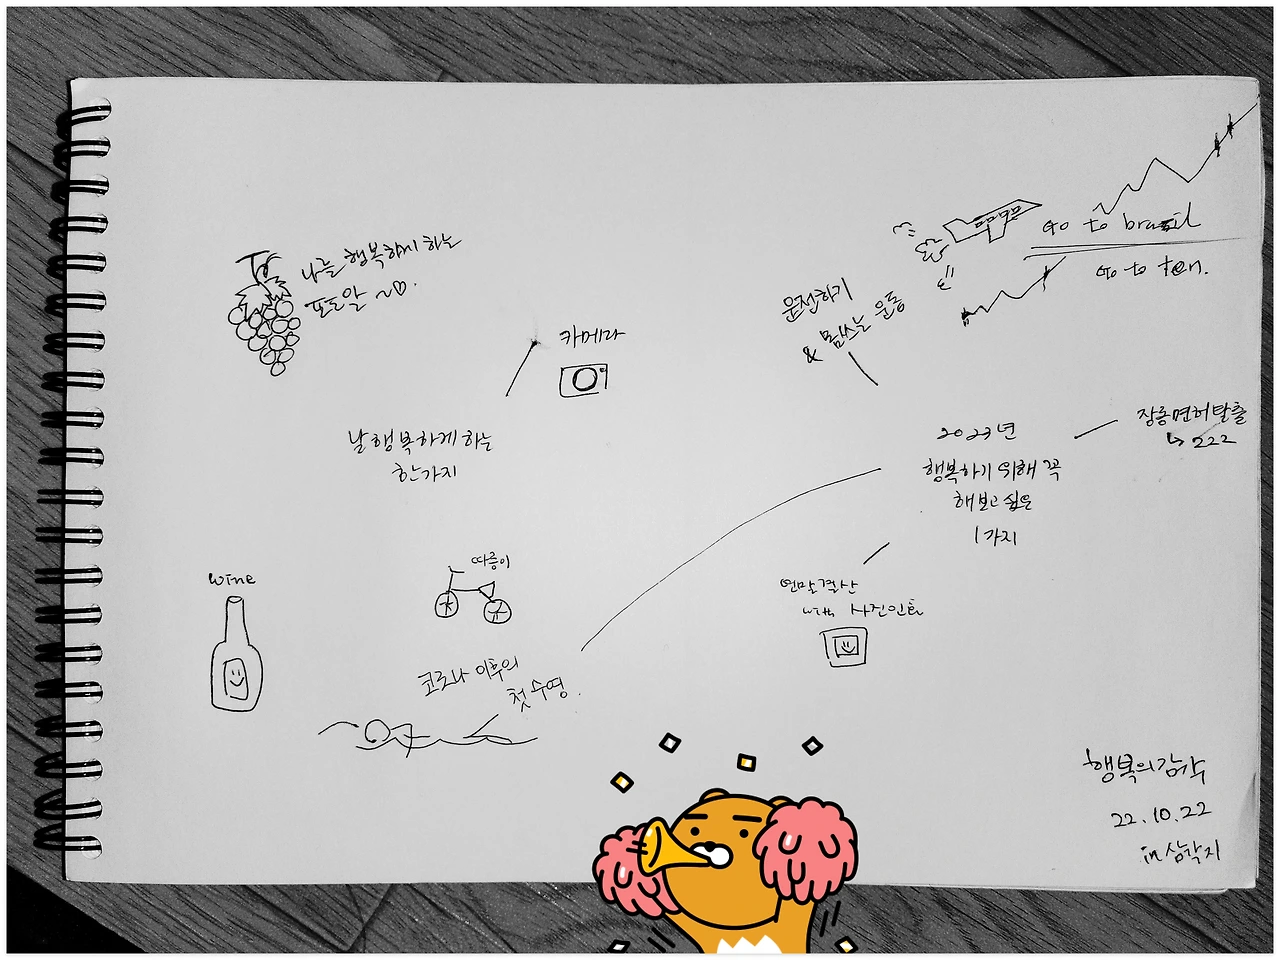 나를 행복하게 하는
포도알 ~♡.
카메라
날 행복하게 하는
한가지
wine
따릉이
코로나 이후의
첫 수영.
Go to brazil
Go to ten.
운전하기
& 몸쓰는 운동
2023년
행복하기 위해 꼭
해보고 싶은
1가지
장롱면허탈출
↳ 222
연말결산
with 사진인화
행복의감각
22.10.22
in 삼각지